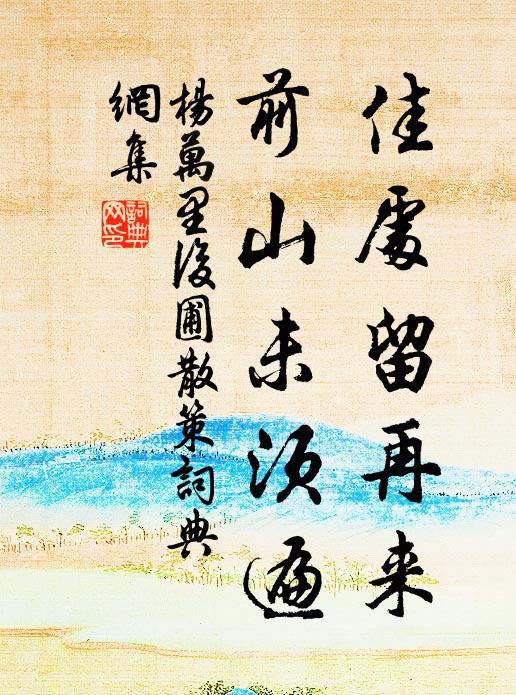 佳處留再来
前山未須遍
楊萬里後圃散策詞典
網集
詞典
網印